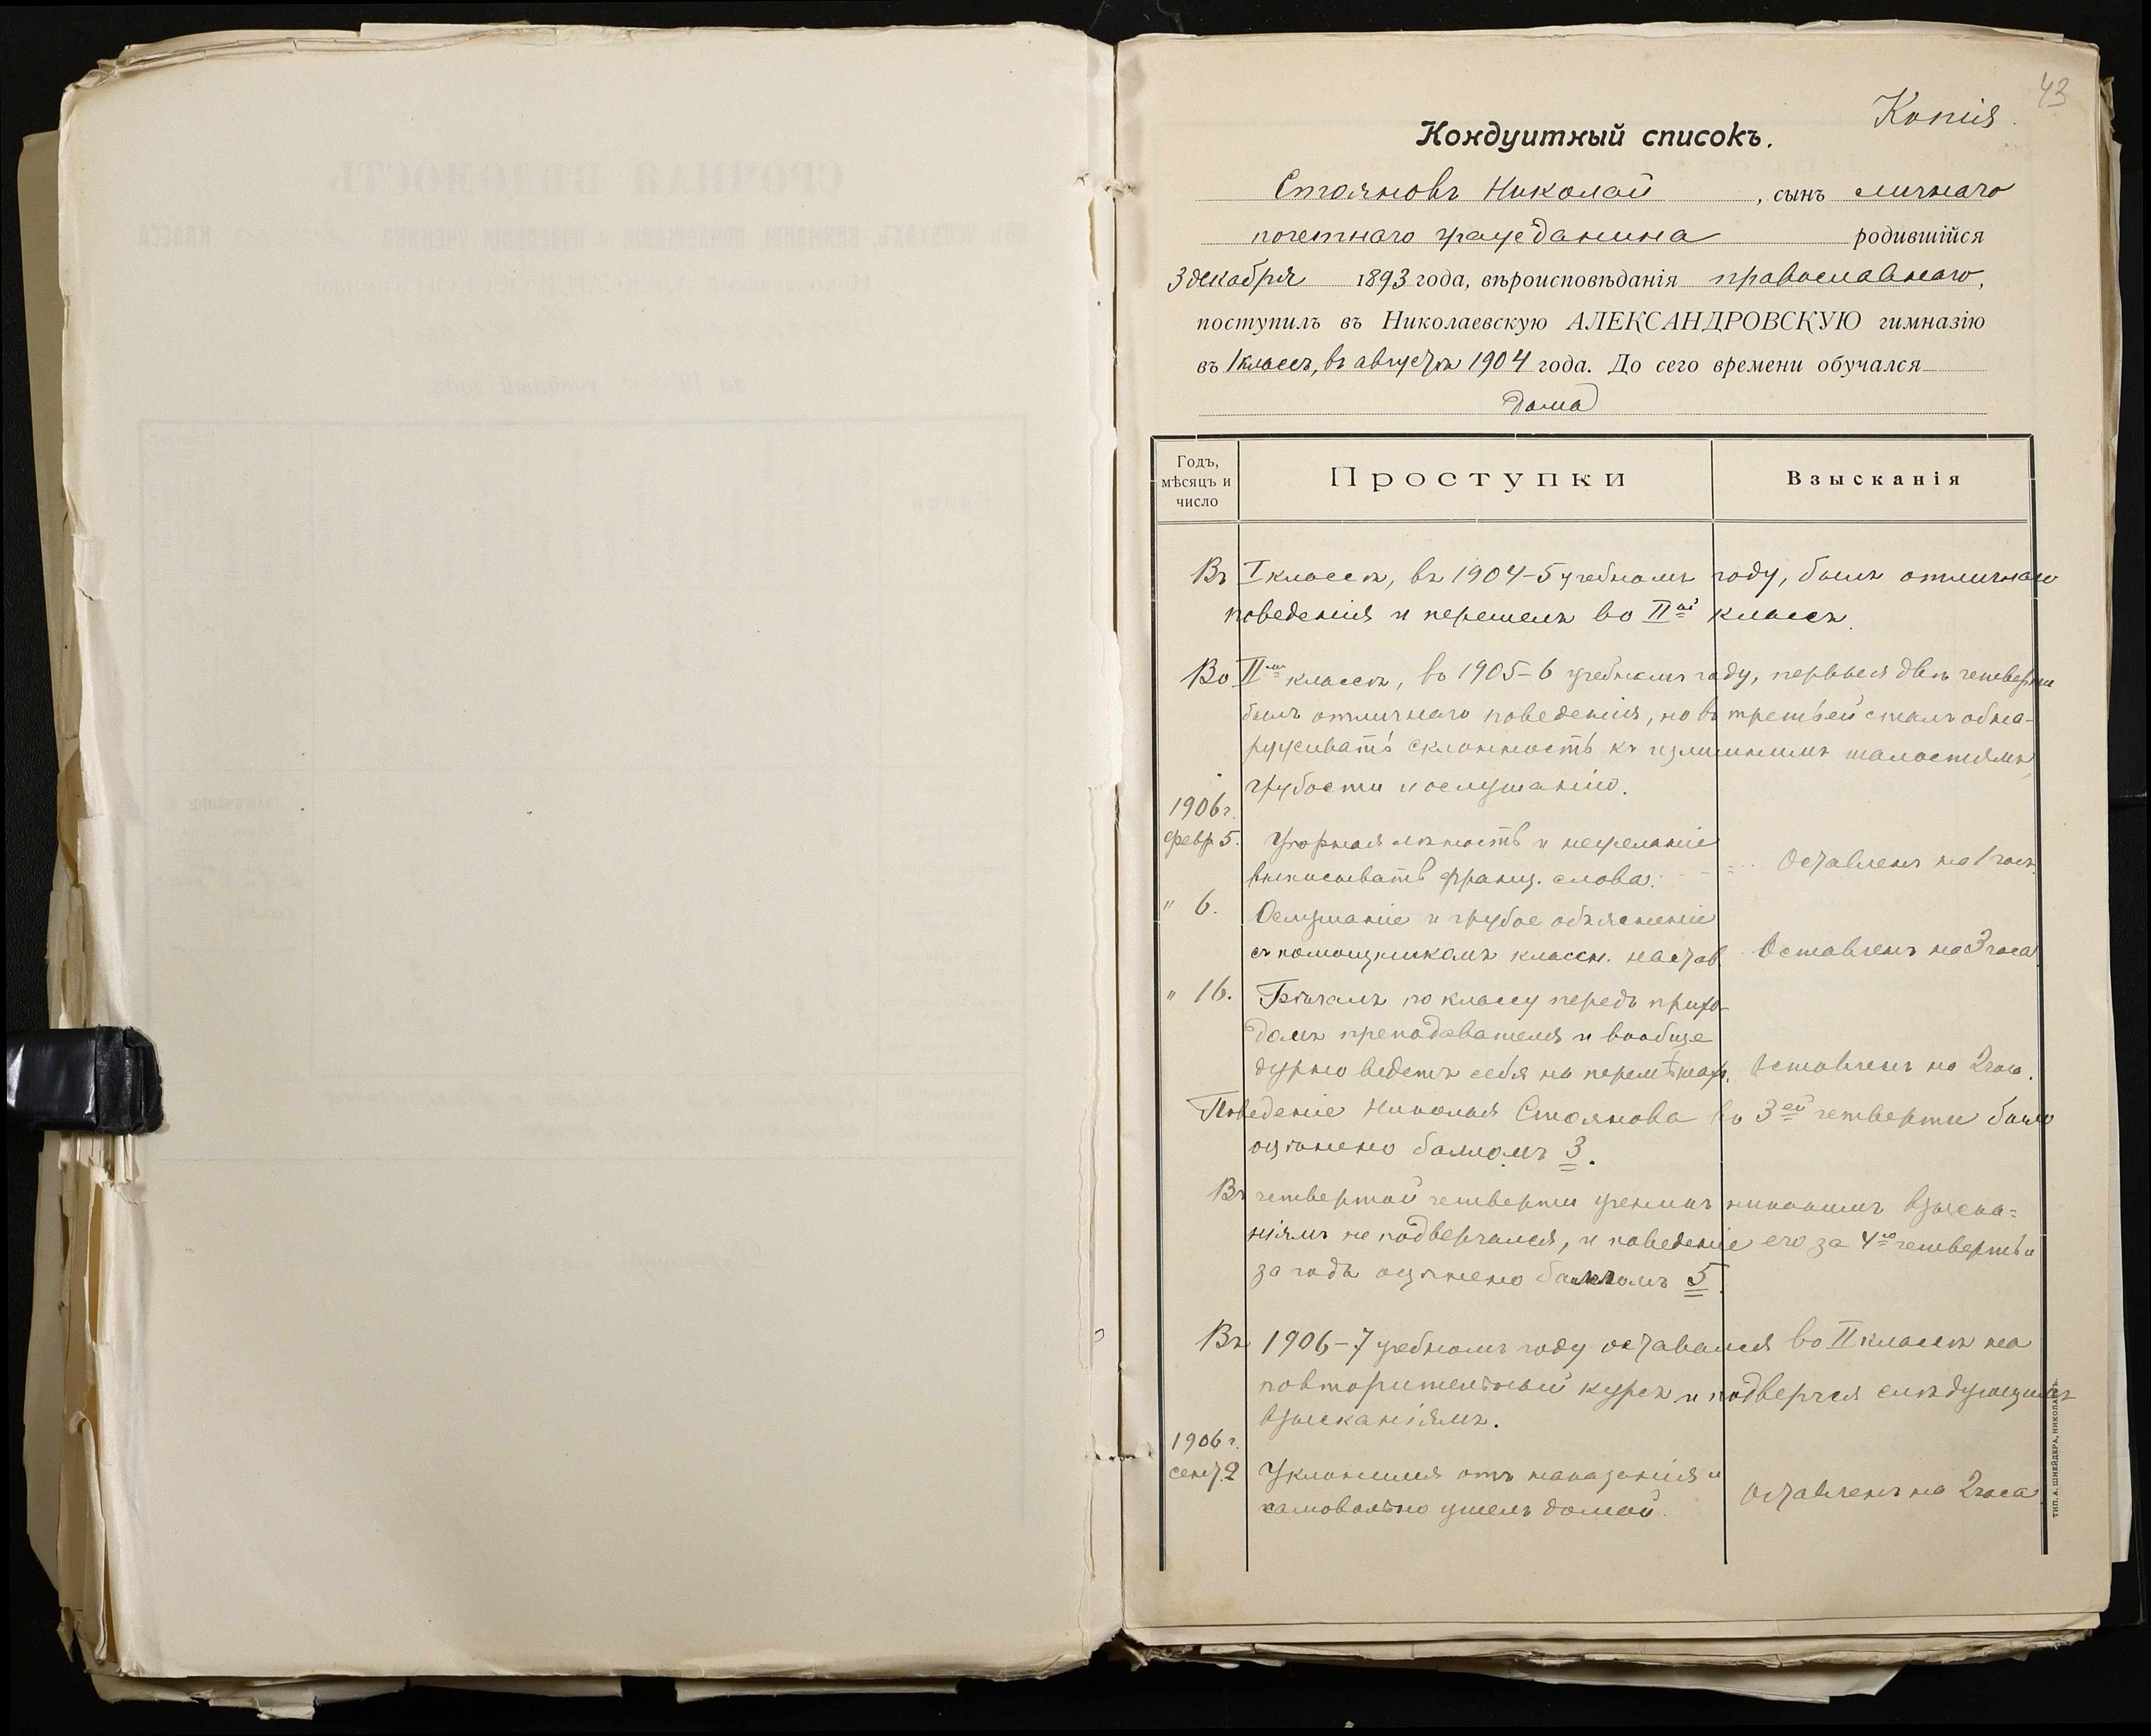 43
Копія.
Кондуитный списокъ.
Стояновъ Николай, сынъ личнаго
почетнаго гражданина родившійся
3 декабря 1893 года, вѣроисповѣданія православнаго,
поступилъ въ Николаевскую АЛЕКСАНДРОВСКУЮ гимназію
въ I классъ, въ августѣ 1904 года. До сего времени обучался
дома
Годъ, мѣсяцъ и число
Проступки
Взысканія
Въ I классѣ, въ 1904-5 учебномъ году, былъ отличнаго
поведенія и перешелъ во IIой классъ.
Во IIмъ классѣ, въ 1905-6 учебномъ году, первыя двѣ четверти
былъ отличнаго поведенія, но въ третьей сталъ обна-
руживать склонность къ излишнимъ шалостямъ,
грубости и ослушанію.
1906 г.
февр. 5. Упорная лѣность и нежеланіе
выписывать франц. слова. Оставленъ на 1 часъ.
" 6. Ослушаніе и грубое объясненіе
съ помощникомъ классн. настав. Оставленъ на 3 часа.
" 16. Бѣгалъ по классу передъ прихо-
домъ преподавателя и вообще
дурно ведетъ себя на перемѣнахъ. Оставленъ на 2 часа.
Поведеніе Николая Стоянова въ 3ей четверти было
оцѣнено балломъ 3.
Въ четвертой четверти ученикъ никакимъ взыска=
ніямъ не подвергался, и поведеніе его за 4ю четверть и
за годъ оцѣнено балломъ 5.
Въ 1906-7 учебномъ году оставался во II классѣ на
повторительный курсъ и подвергся слѣдующимъ
взысканіямъ.
1906 г.
сент. 2 Уклонился отъ наказанія и
самовольно ушелъ домой. Оставленъ на 2 часа
ТИП. А. ШНЕЙДЕРА, НИКОЛАЕВЪ.